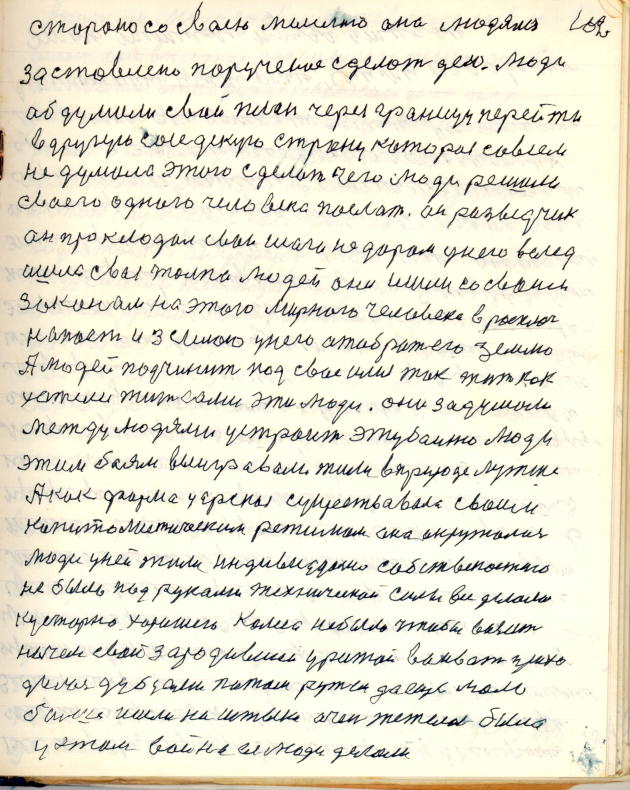 стороно со своею мелието она людямз 182
заставлено поручение сделат дело. люди
абдумали свой план через границу перейти
в другую соседскую страну которая совсем
не думала этого сделат чего люди решили
своего одного человека послат. он разведчик
он проклодал свои шаги недаром у него вслед
шла своя толпа людей они шли со своим
законам на этого мирного человека врасплох
напаст и з силою у него отобрат его землю
А людей подчинит под свое имя так жит как
хотели жит сами эти люди. они задумали
между людями устроит эту войно люди
этим боям выигравали жили в природе лутше
А как форма царская существавала своим
копитолистическим режимом она окружалась
люди у ней жили индивидуано собствеността
не было под руками технической силы все делали
кусторно хорошего колеса небыло чтобы взят
начен свой зародивший урожай
дубцами патом ружя дающ мало
были шли на штыки очен тежело было
у этом война люди делали